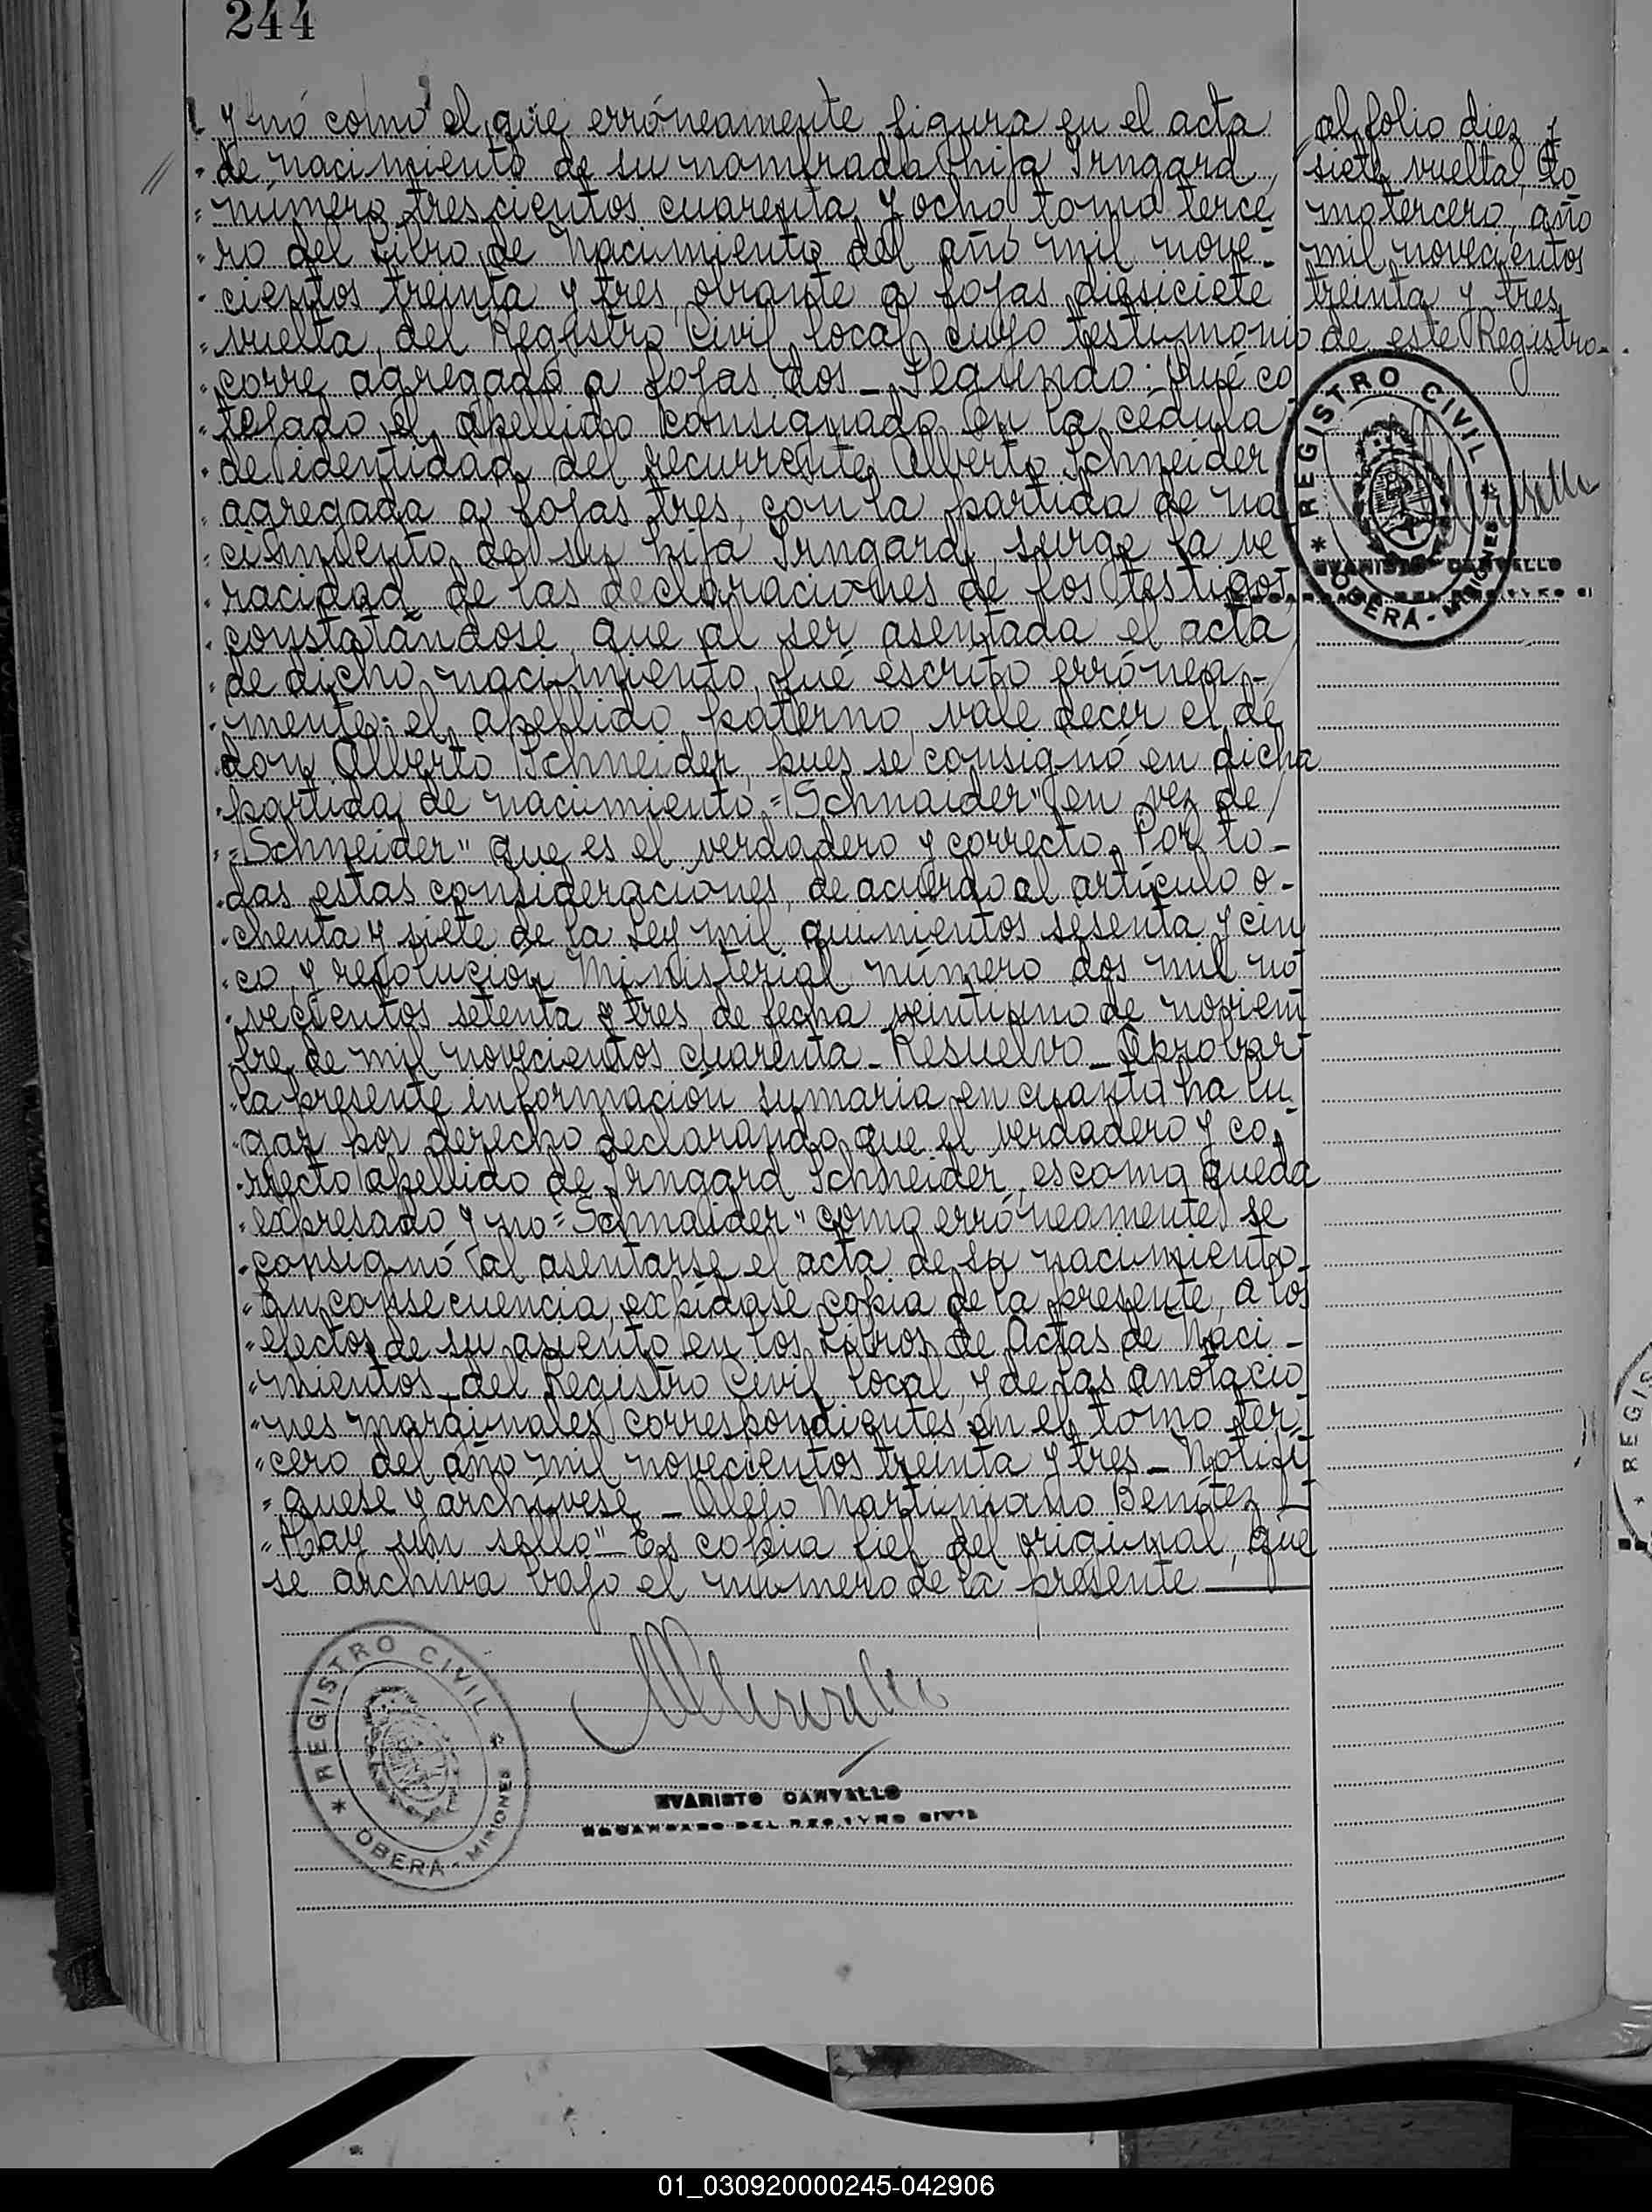 244
y nó como el que erróneamente figura en el acta
"de nacimiento de su nombrada hija Irngard,
"número trescientos cuarenta y ocho tomo terce
"ro del Libro de Nacimiento del año mil nove-
"cientos treinta y tres, obrante a fojas diesiciete
"vuelta, del Registro Civil local cuyo testimonio
"corre agregado a fojas dos_Segundo: Que co
"tejado el apellido consignado en la cédula
"de identidad del recurrente Alberto Schneider
"agregada a fojas tres, con la partida de na
"cimiento de su hija Irngard, surge la ve
"racidad de las declaraciones de los testigos
"constatándose, que al ser asentada el acta
"de dicho nacimiento, fué escrito errónea-
"mente el apellido paterno, vale decir el de
"don Alberto Schneider, pues se consignó en dicha
"partida de nacimiento "Schnaider" en vez de
""Schneider" que es el verdadero y correcto. Por to-
"das estas consideraciones, de acuerdo al artículo o-
"chenta y siete de la Ley mil quinientos sesenta y cin
"co, y resolución Ministerial número dos mil no
"vecientos setenta y tres de fecha veintiuno de noviem
"bre de mil novecientos cuarenta_Resuelvo_Aprobar
"la presente información sumaria en cuanto ha lu-
"gar por derecho declarando que el verdadero y co-
"rrecto apellido de Irngard Schneider, es como queda
"expresado y no "Schnaider" como erróneamente se
"consignó al asentarse el acta de su nacimiento.
"En consecuencia, expídase copia de la presente, a los
"efectos de su asiento en los Libros de Actas de Naci-
"mientos del Registro Civil local, y de las anotacio
"nes marginales correspondientes en el tomo ter
"cero del año mil novecientos treinta y tres_Notifí
"quese y archívese_Alejo Martiniano Benítez_
"Hay un sello"_Es copia fiel del original, que
se archiva bajo el número de la presente
al folio diez y
siete vuelta, to
mo tercero, año
mil novecientos
treinta y tres
de este Registro_.
REGISTRO CIVIL
OBERA - MISIONES
EVARISTO CARVALLO
ENCARGADO DEL REGISTRO CIVIL
REGISTRO CIVIL
OBERA - MISIONES
EVARISTO CARVALLO
ENCARGADO DEL REGISTRO CIVIL
REGIS
01_030920000245-042906